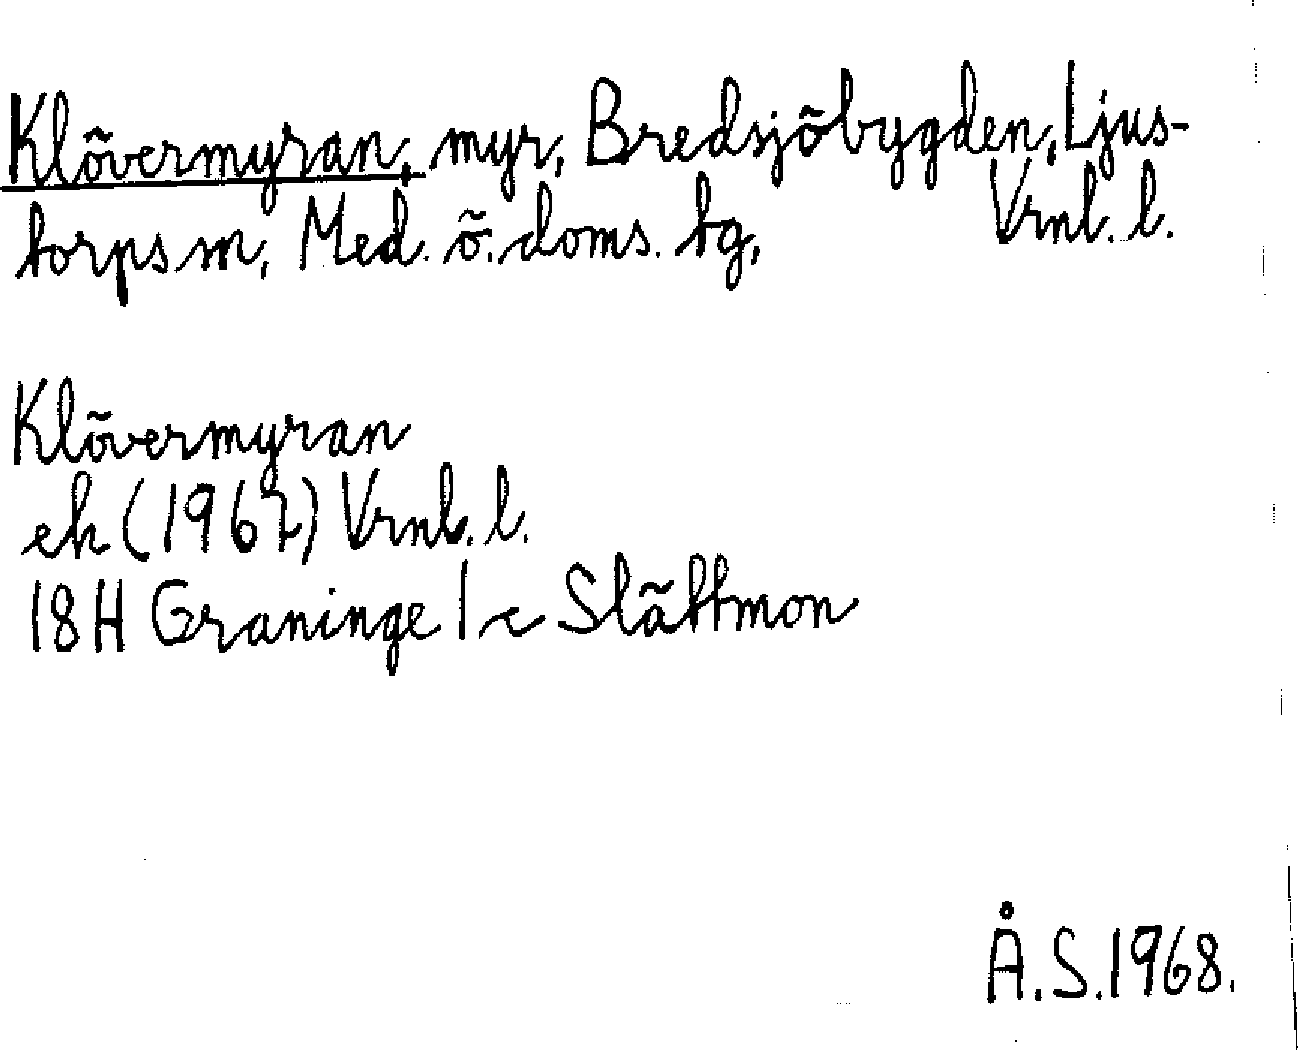 Klövermyran, myr, Bredsjöbygden, Ljus-
torps sn, Med. ö. doms. tg, Vrnl. l.

Klövermyran
ek (1967) Vrnl. l.
18H Graninge 1 c Slättmon

Å.S.1968.